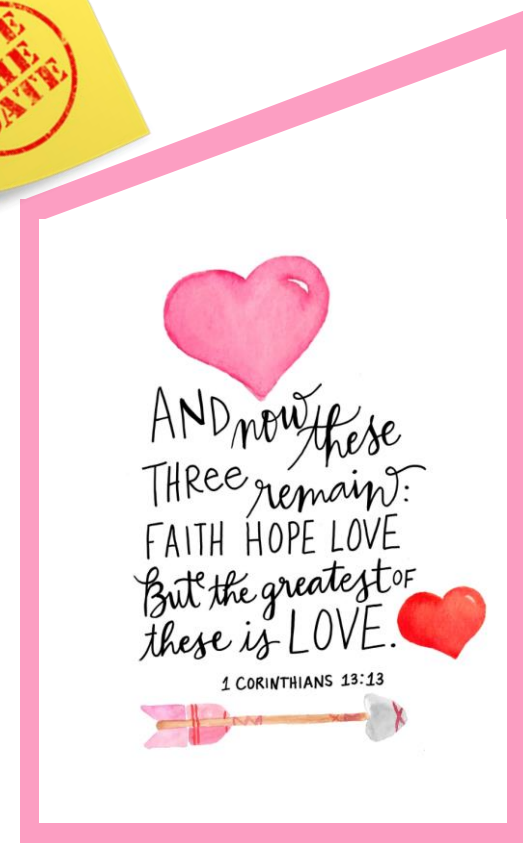 THE
DATE
AND now these
THRee remain:
FAITH HOPE LOVE
But the greatest OF
these is LOVE.
1 CORINTHIANS 13:13